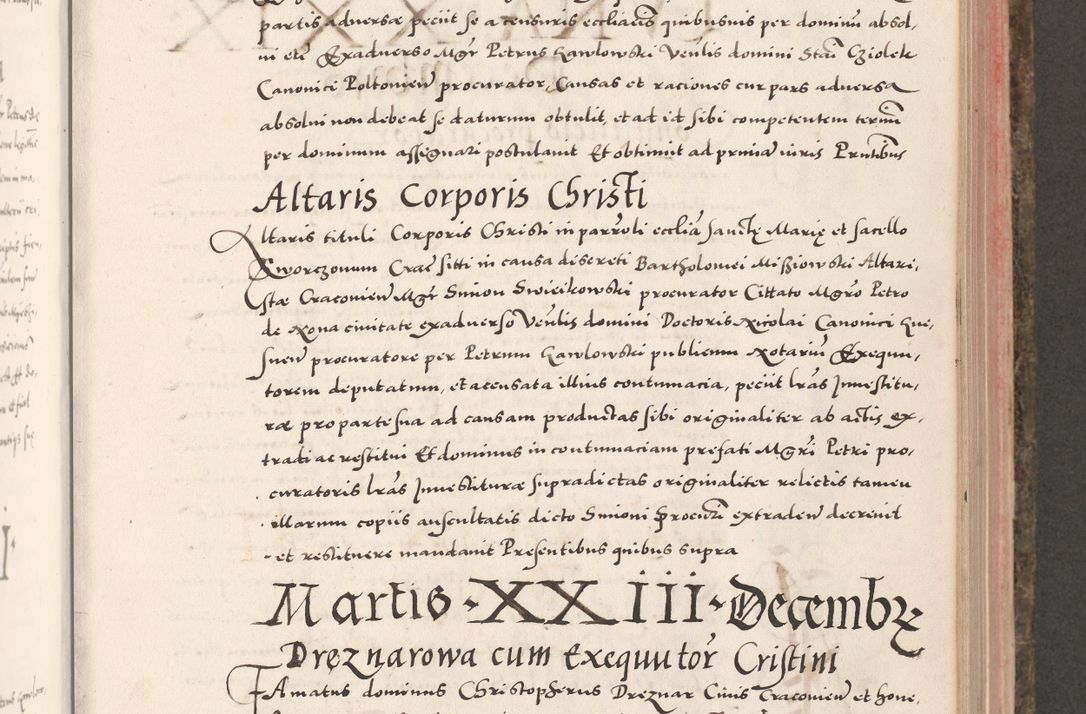 partis adversæ peciit se a censuris eccliacis quibusuis per dominū absol,
ui etc̄ Exadverso Mgr̄ Petrus Gawlowski Venlis domini Stai Cziolek
Canonici Poltovien̄ procurator, Causas et raciones cur pars adversa
absolui non debeat se daturum obtulit, et ad id sibi competentem termīn
per dominum assignari postulauit Et obtinuit ad primā iuris Prntibus
Altaris Corporis Christi
Altaris tituli Corporis Christi in parroli ecclīa sanctę Marię et sacello
Kworczonum Crac̄ sitti in causa discreti Bartholomei Mißiowski Altari,
stæ Cracovien̄ Mgr̄ Simon Swieikowski procurator Cittato Mgro Petro
de Rona civitate exadverso Venlis domini Doctoris Nicolai Canonici Gne,
snen̄ procuratore per Petrum Gawlowski publicum Notariū Exequu,
torem deputatum, et acensata illius contumacia, peciit lrās Investitu,
ræ pro parte sua ad causam productas sibi originaliter ab actis ex,
tradi ac restitui Et dominus in contumaciam prefati Mgri Petri pro,
curatoris lrās Investituræ supradictas originaliter relictis tamen
illarum copiis auscultatis dicto Simoni procurī extraden̄ decrevit
et restituere mandavit Presentibus quibus supra
Martis · XXIII · Decembrę
Dręznarowa cum Exequutor̄ Cristini
Famatus dominus Christopherus Dreznar Civis Cracovien̄ et hone,